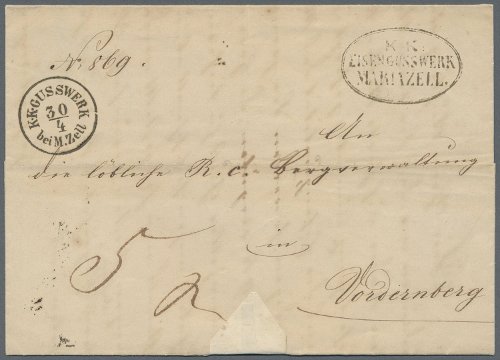 No. 869.
K.K. GUSSWERK
30
4
bei M. Zell
K. K.
EISENGUSSWERK
MARIAZELL.
An
die löbliche R. c. Bergverwaltung
in
Vordernberg
5
2